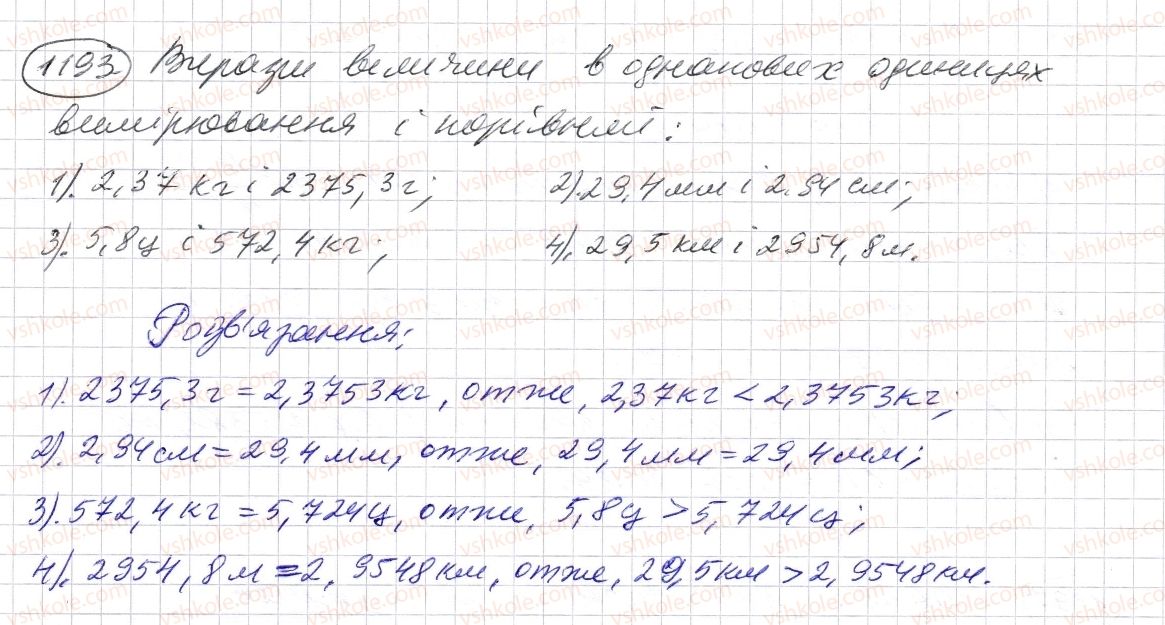 1193 Вирази величини в однакових одиницях
вимірювання і порівняй:
1). 2,37 кг і 2375,3г; 2). 29,4мм і 2.94 см;
3). 5,8ц і 572,4кг; 4). 29,5 км і 2954,8м.
Розв'язання:
1). 2375,3г = 2,3753кг, отже, 2,37кг < 2,3753кг;
2). 2,94см = 29,4мм, отже, 29,4мм = 29,4мм;
3). 572,4кг = 5,724ц, отже, 5,8ц > 5,724ц;
4). 2954,8м = 2,9548км, отже, 29,5км > 2,9548км.